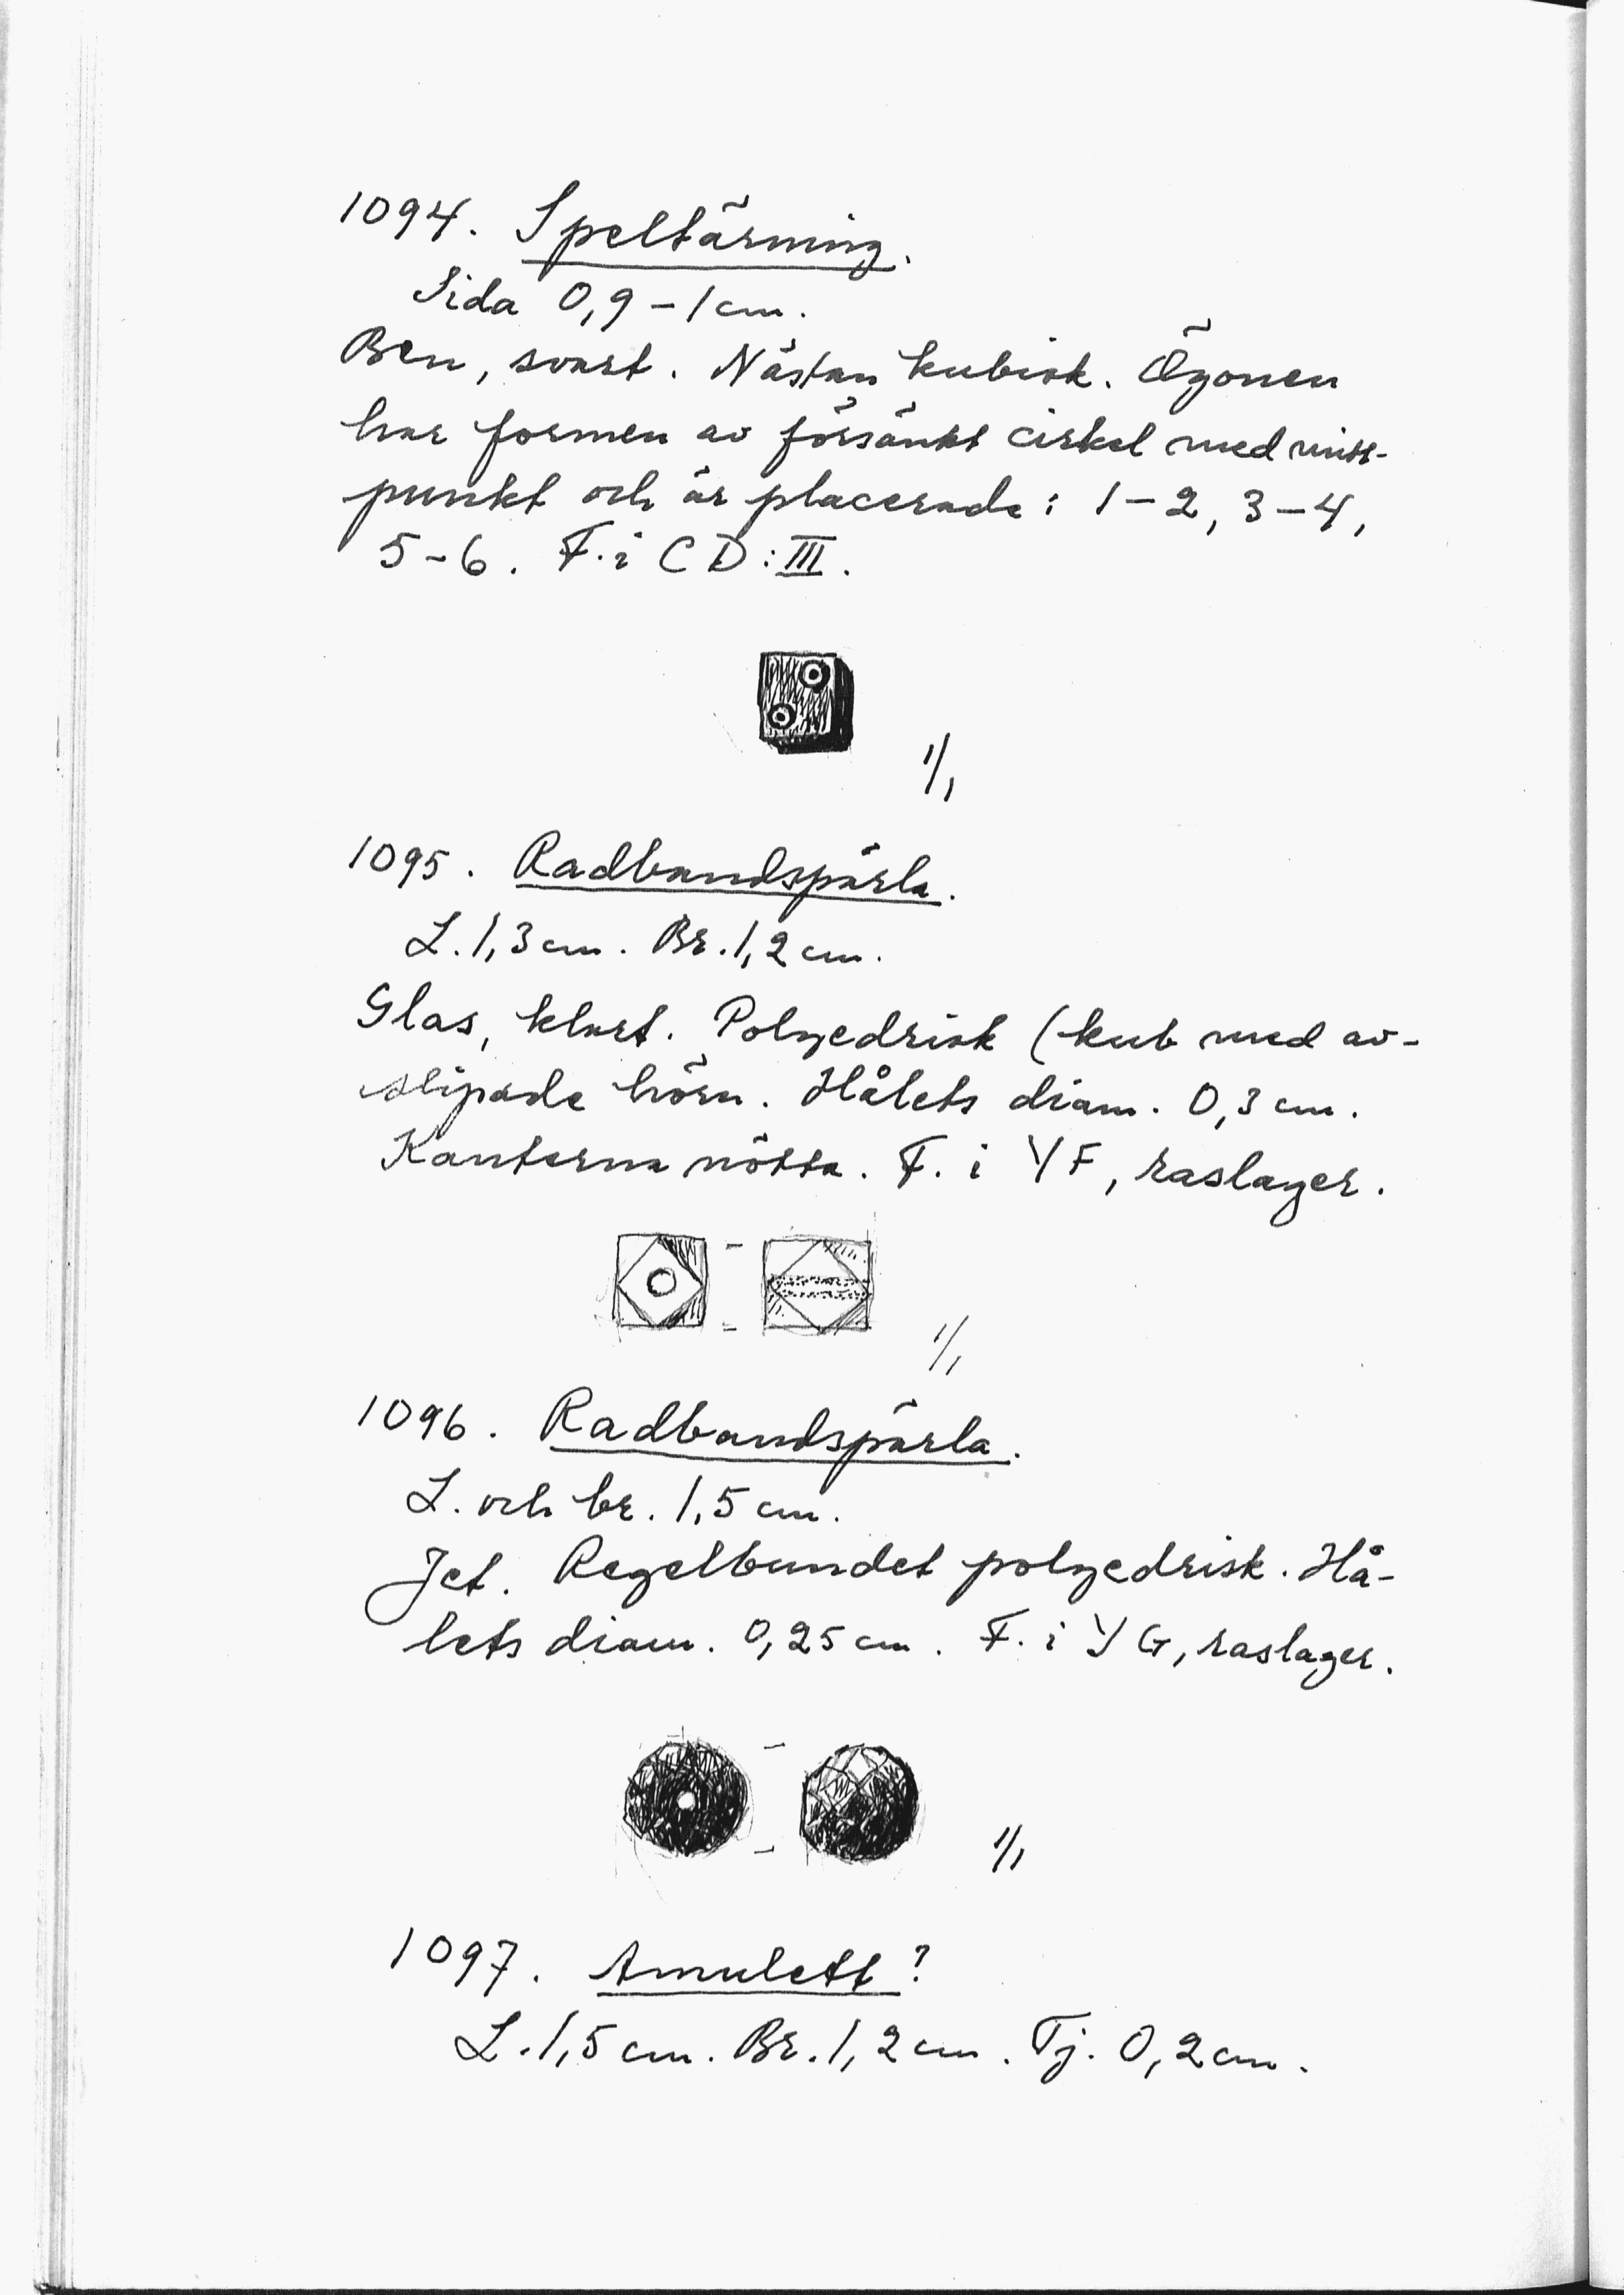 1094. Speltärning.
Sida 0,9 – 1 cm.
Ben, svart. Nästan kubisk. Ögonen
har formen av försänkt cirkel med mitt-
punkt och är placerade: 1–2, 3–4,
5–6. F. i CD:III.
1/1
1095. Radbandspärla.
L. 1,3 cm. Br. 1,2 cm.
Glas, klart. Polyedrisk (kub med av-
slipade hörn. Hålets diam. 0,3 cm.
Kanterna nötta. F. i YF, raslager.
1/1
1096. Radbandspärla.
L. och br. 1,5 cm.
Jet. Regelbundet polyedrisk. Hå-
lets diam. 0,25 cm. F. i YG, raslager.
1/1
1097. Amulett?
L. 1,5 cm. Br. 1,2 cm. Tj. 0,2 cm.